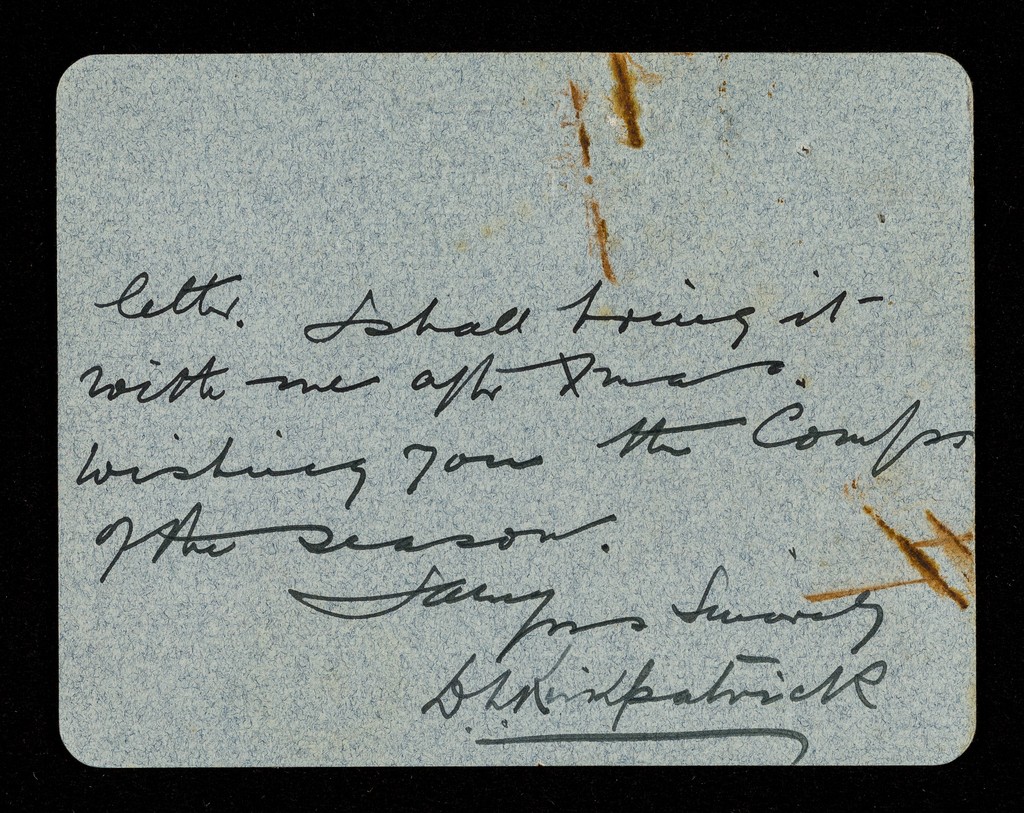 letter. I shall bring it
with me after Xmas.
wishing you the Comps
of the season.
I am
yrs Sincerely
D. L. Kirkpatrick